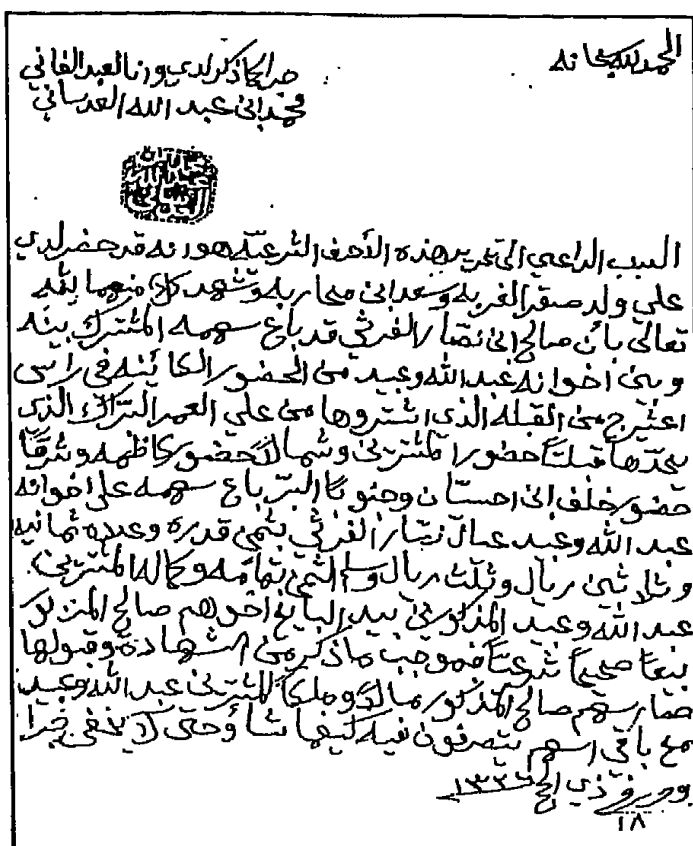 الحمد لله سبحانه
جرا كما ذكر لدي وانا العبد الفاني
محمد ابن عبد الله العدساني
السبب الداعي الى تحرير هذه الأحرف الشرعيّة هو انه قد حضر لدي
علي ولد صقر الغربه وسعد ابن محاربه وشهد كل منهما لله
تعالى بأن صالح ابن نصار القرشي قد باع سهمه المشترك بينه
وبين اخوانه عبد الله وعبيد من الحضور الكائينه في راس
اعشيرج من القبله الذي اشتروها من علي العمر التراك الذي
يحدّها قبلتاً حضور المشترين وشمالاً حضور كاظمه وشرقاً
حضور خلف ابن احستان وجنوباً البرّ باع سهمه على اخوانه
عبد الله وعبيد عيال نصار القرشي بثمن قدره وعدده ثمانيه
وثلاثين ريال وثلث ريال وساء الثمن بتمامه وكماله المشترين
عبد الله وعبيد المذكورين بيد البايع اخوهم صالح المذكور
بيعاً صحيحاً شرعيّاً فموجب ماذكر من الشهادة وقبولها
صار سهم صالح المذكور مالاً وملكاً للمشترين عبد الله وعبيد
مع باقي اسهم يتصرفون فيه كيفما شاؤ وحتى لا يخفى جرا
وحرر في ذي الحج ١٣٣٦
١٨